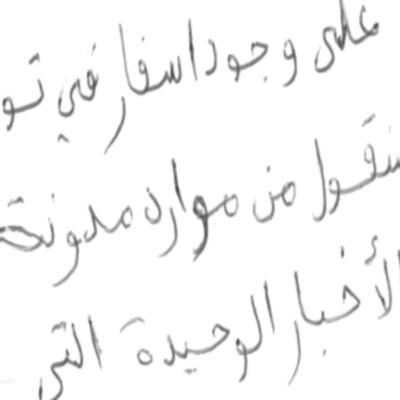 على وجود اسفار في تو
منقول من موارد مدونة
الأخبار الوحيدة التي